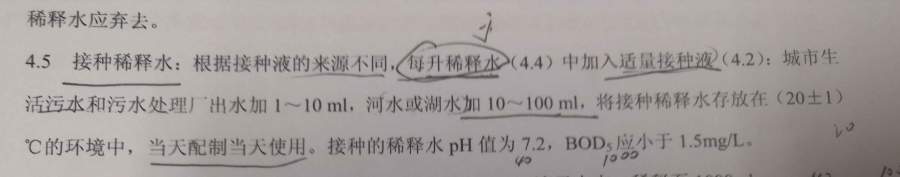 稀释水应弃去。
4.5 接种稀释水：根据接种液的来源不同，每升稀释水（4.4）中加入适量接种液（4.2）：城市生
活污水和污水处理厂出水加 1～10 ml，河水或湖水加 10～100 ml，将接种稀释水存放在（20±1）
℃的环境中，当天配制当天使用。接种的稀释水 pH 值为 7.2，BOD₅应小于 1.5mg/L。
20
40 1000